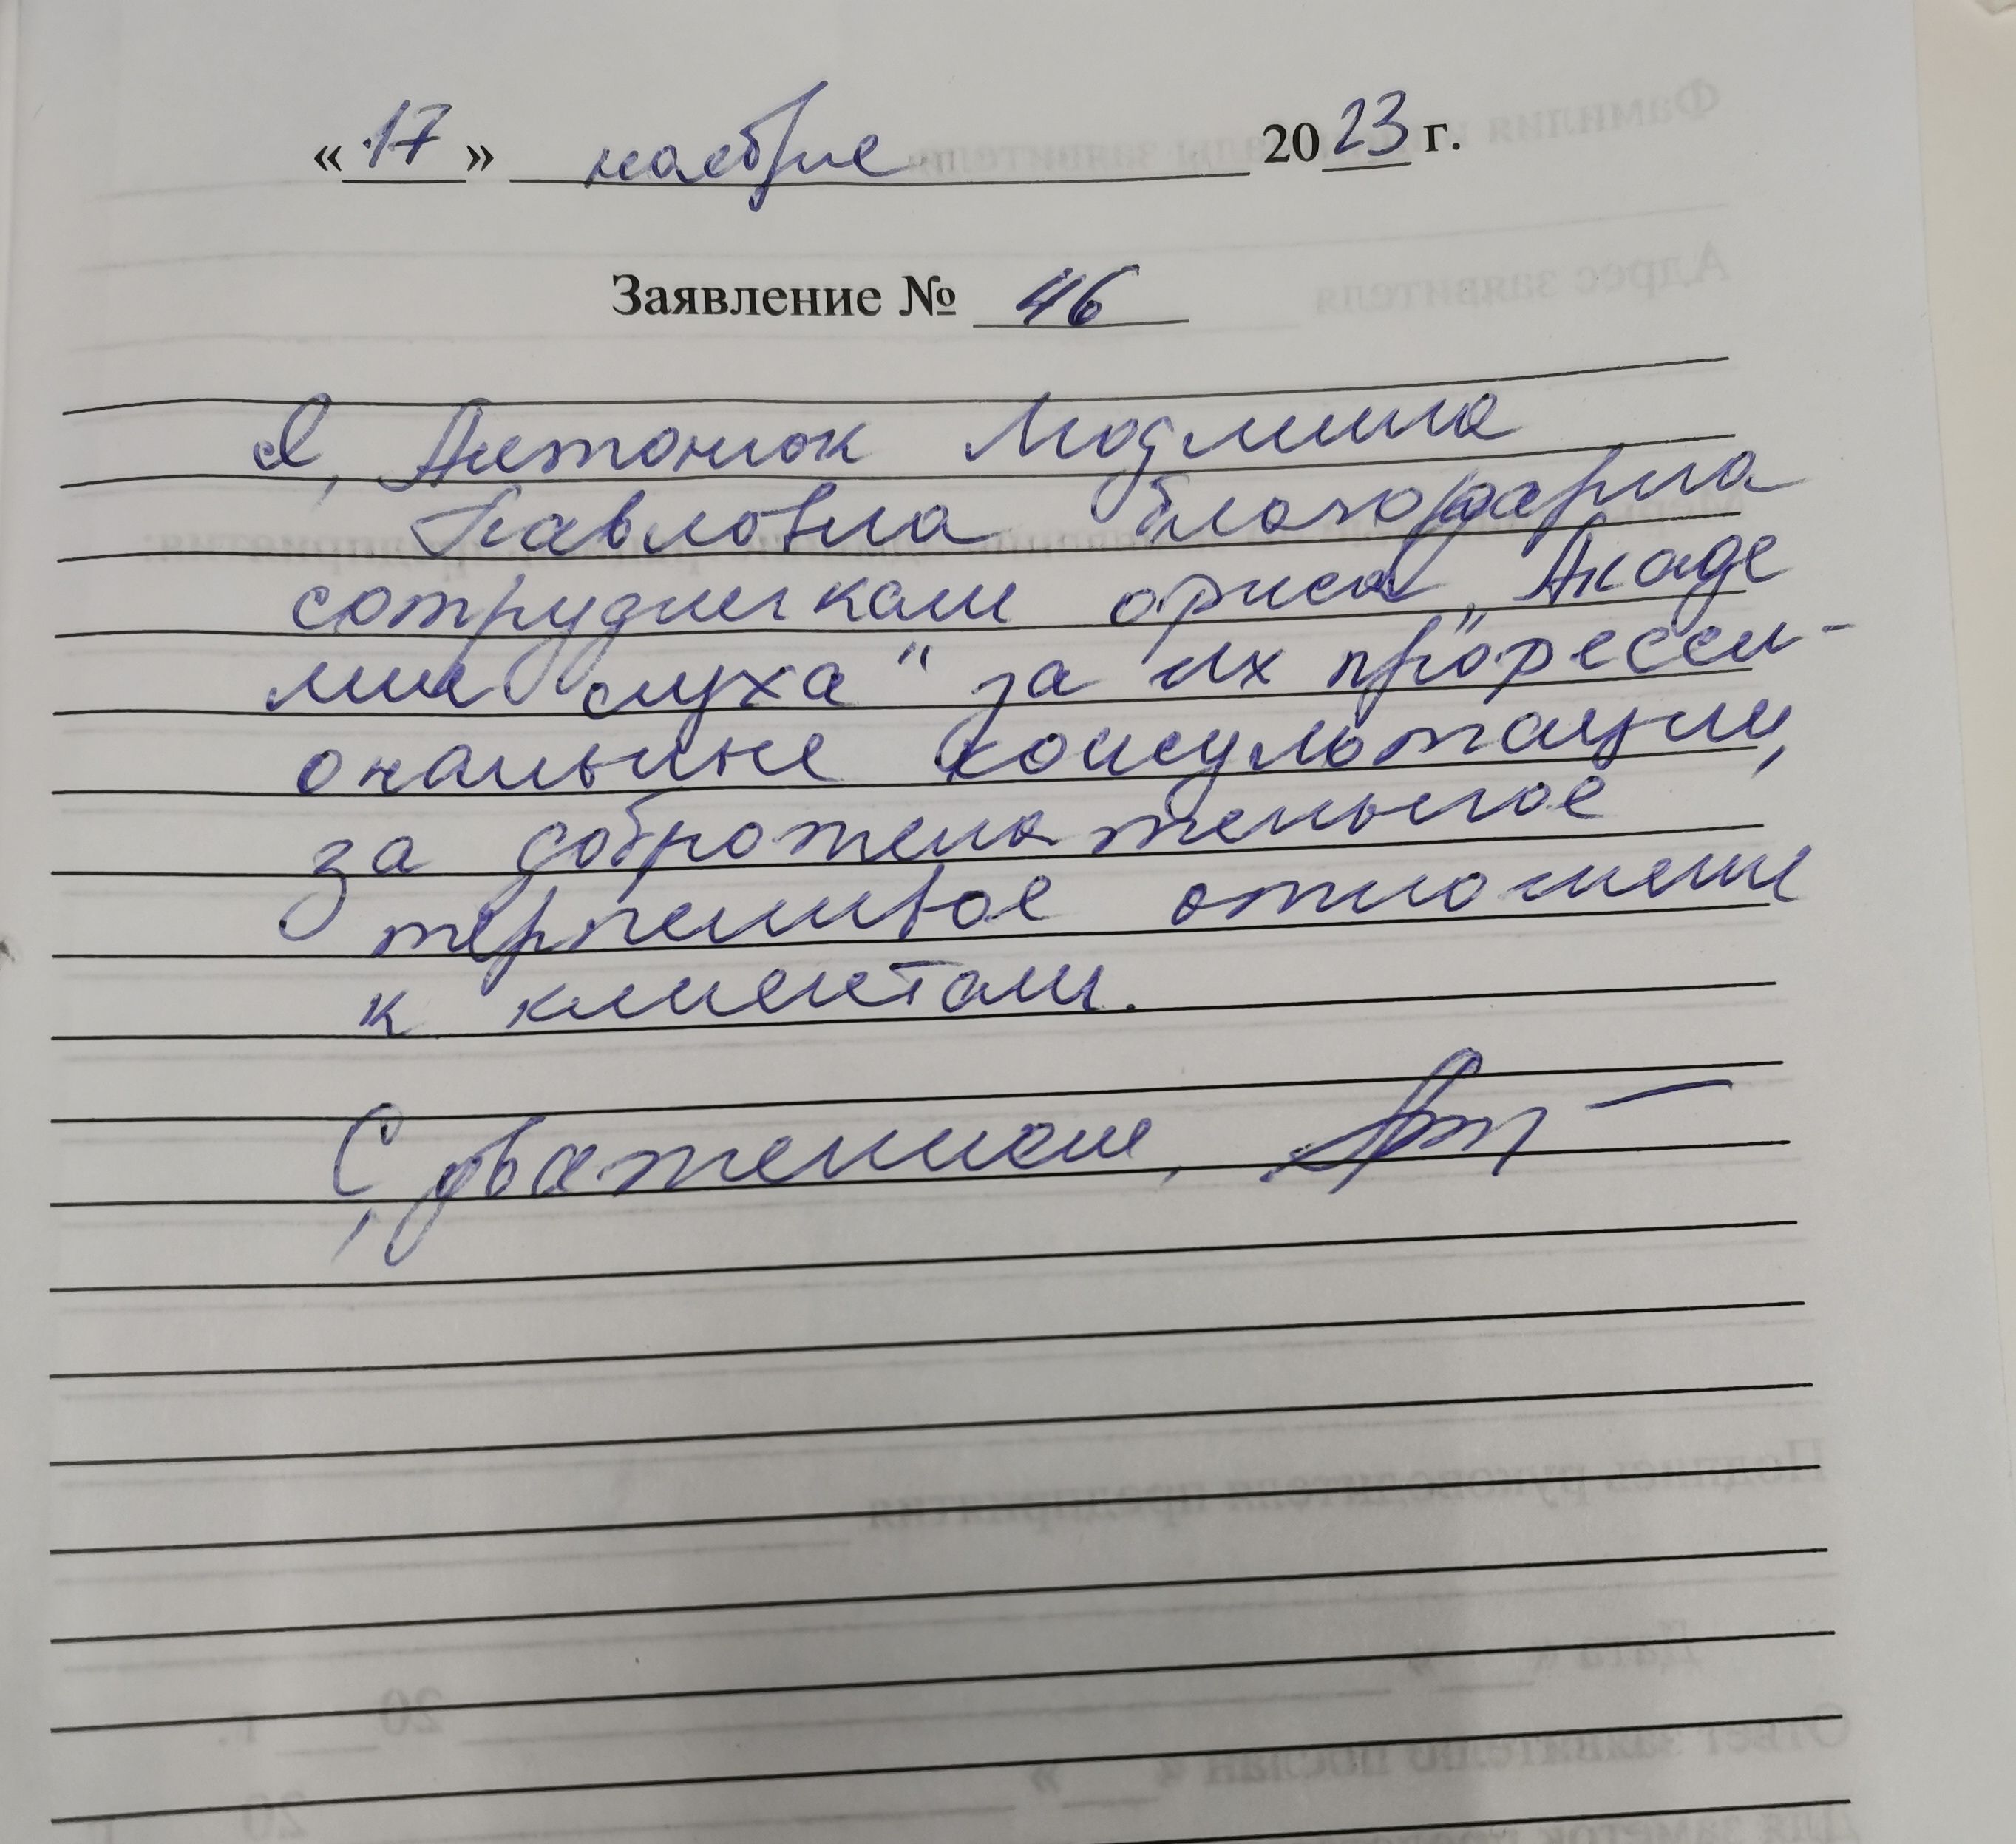 «17» ноября 2023 г.
Заявление № 46
Я, Антонюк Людмила
Павловна благодарна
сотрудникам офиса „Акаде
мии слуха“ за их професси-
ональные консультации,
за доброжелательное
терпеливое отношение
к клиентам.
С уважением,